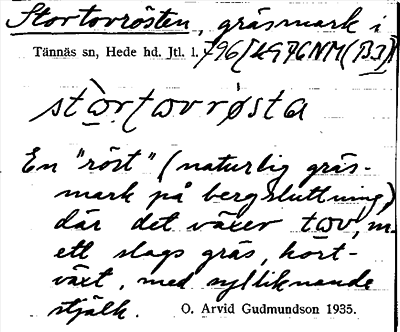 Stortovrösten, gräsmark i
Tännäs sn, Hede hd. Jtl. l.
stɷrtɷvrøsta
En "röst" (naturlig gräs-
mark på bergsluttning,)
där det växer tɷv, m.
ett slags gräs, kort-
växt, med sylliknande
stjälk. O. Arvid Gudmundson 1935.